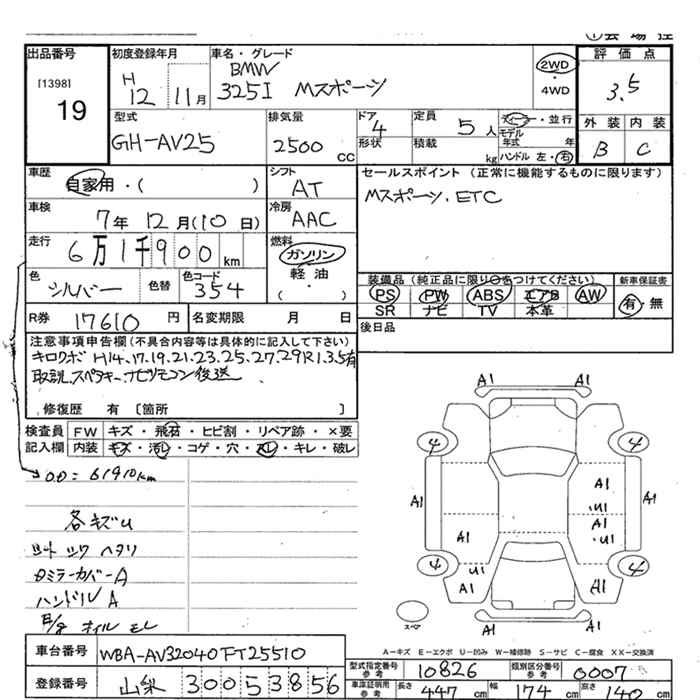 ① 会 場 控
出品番号
[1398]
19
初度登録年月
H 12 11月
車名・グレード
BMW
325I Mスポーツ
2WD
4WD
評 価 点
3.5
外 装 内 装
B C
型式
GH-AV25
排気量
2500 CC
ドア
4
形状
定員
5 人
積載
kg
ディーラー・並行
モデル
年式 年
ハンドル 左・右
車歴
自家用・( )
シフト
AT
セールスポイント (正常に機能するものに限ります)
Mスポーツ. ETC
車検
7年 12月(10日)
冷房
AAC
走行
6万1千900km
燃料
ガソリン
軽 油
( ・ )
色
シルバー
色替
色コード
354
装備品 (純正品に限り○をつけてください)
PS PW ABS エアB AW
SR ナビ TV 本革
新車保証書
有・無
R券 17610 円
名変期限 月 日
後日品
注意事項申告欄(不具合内容等は具体的に記入して下さい)
キロクボ H14.17.19.21.23.25.27.29R1.3.5有
取説.スペアキー.ナビリモコン後送
修復歴 有 〔箇所 〕
検査員
記入欄
FW キズ・飛石・ヒビ割・リペア跡・×要
内装 キズ・汚レ・コゲ・穴・スレ・キレ・破レ
OD=61910km
各キズU
シート スレ ヘタリ
Dミラーカバー A
ハンドル A
E/g オイル モレ
A1 A1
4 4
A1 A1
A1
U1
A1
U1
A1
U1
4 4
A1 A1
A1 A1
スペア
A－キズ E－エクボ U－凹み W－補修跡 S－サビ C－腐食 XX－交換済
車台番号 WBA-AV32040FT25510
登録番号 山梨 30053856
型式指定番号
参考
10826
類別区分番号
参考
0007
車庫証明用
参考
長さ 447 cm 幅 174 cm 高さ 140 cm